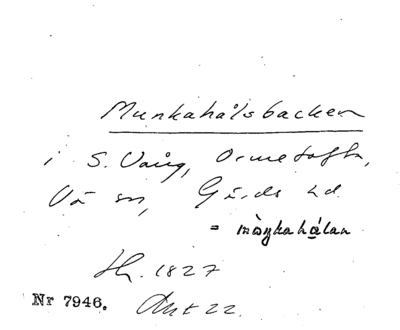 Munkahålsbacken
i S. Vång, Ormetofta,
Vä sn, Gärds hd
= màŋkahålan
Hg. 1827
Nr 7946. Akt 22